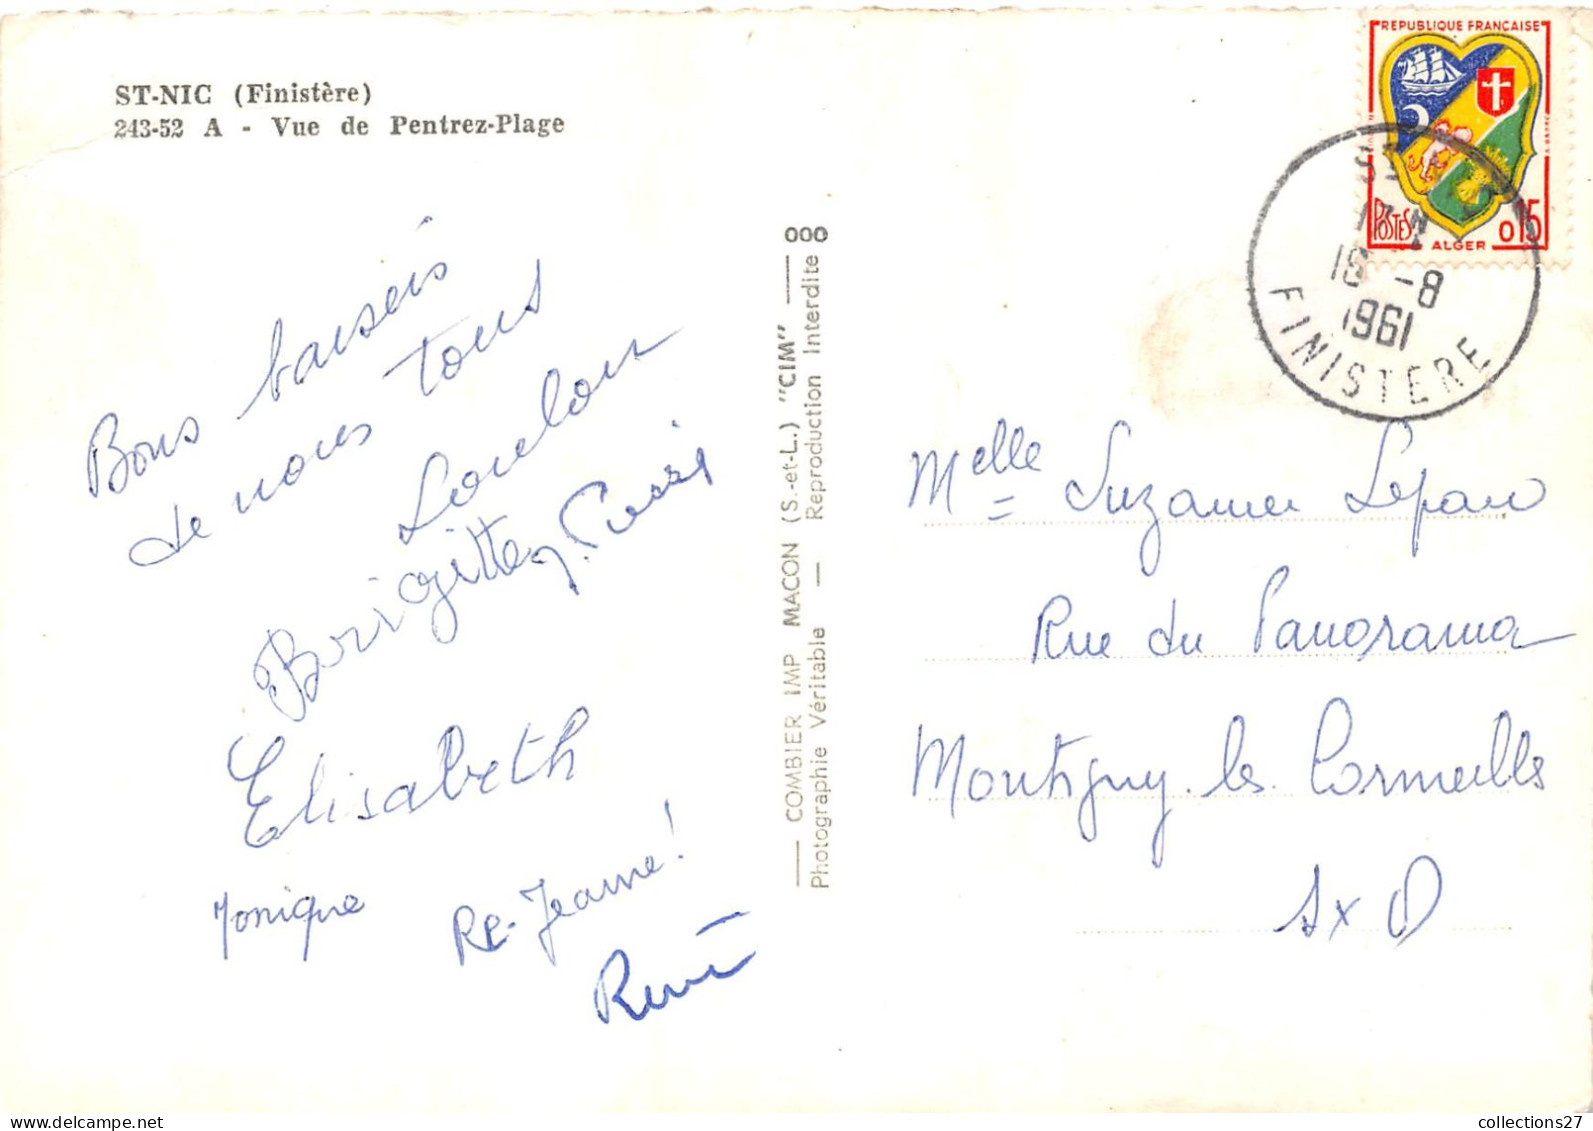 ST-NIC (Finistère)
243-52 A - Vue de Pentrez-Plage
Bons baisers
de nous tous
Loulou
Brigitte
Elisabeth
Monique
Re-Jeanne!
René
COMBIER IMP MACON (S.-et-L.) "CIM" 000
Photographie Véritable — Reproduction Interdite
REPUBLIQUE FRANÇAISE
POSTES
ALGER
0 15
18 -8
1961
FINISTERE
Melle Suzanne Lepan
Rue du Panorama
Montigny les Cormeilles
S x O
collections27